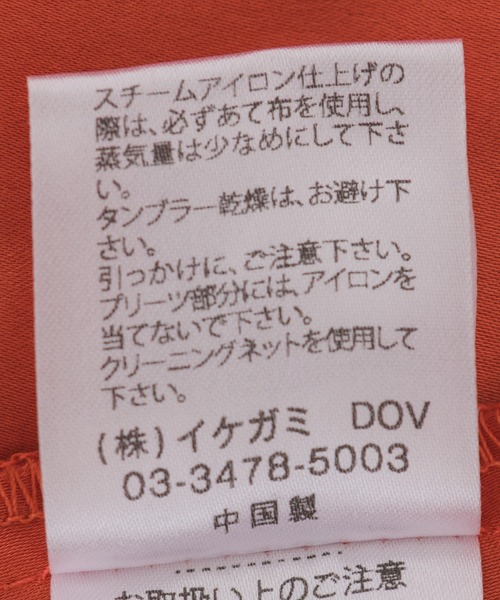 スチームアイロン仕上げの
際は、必ずあて布を使用し、
蒸気量は少なめにして下さ
い。
タンブラー乾燥は、お避け下
さい。
引っかけに、ご注意下さい。
プリーツ部分には、アイロンを
当てないで下さい。
クリーニングネットを使用して
下さい。
(株)イケガミ DOV
03-3478-5003
中国製
お取扱い上のご注意